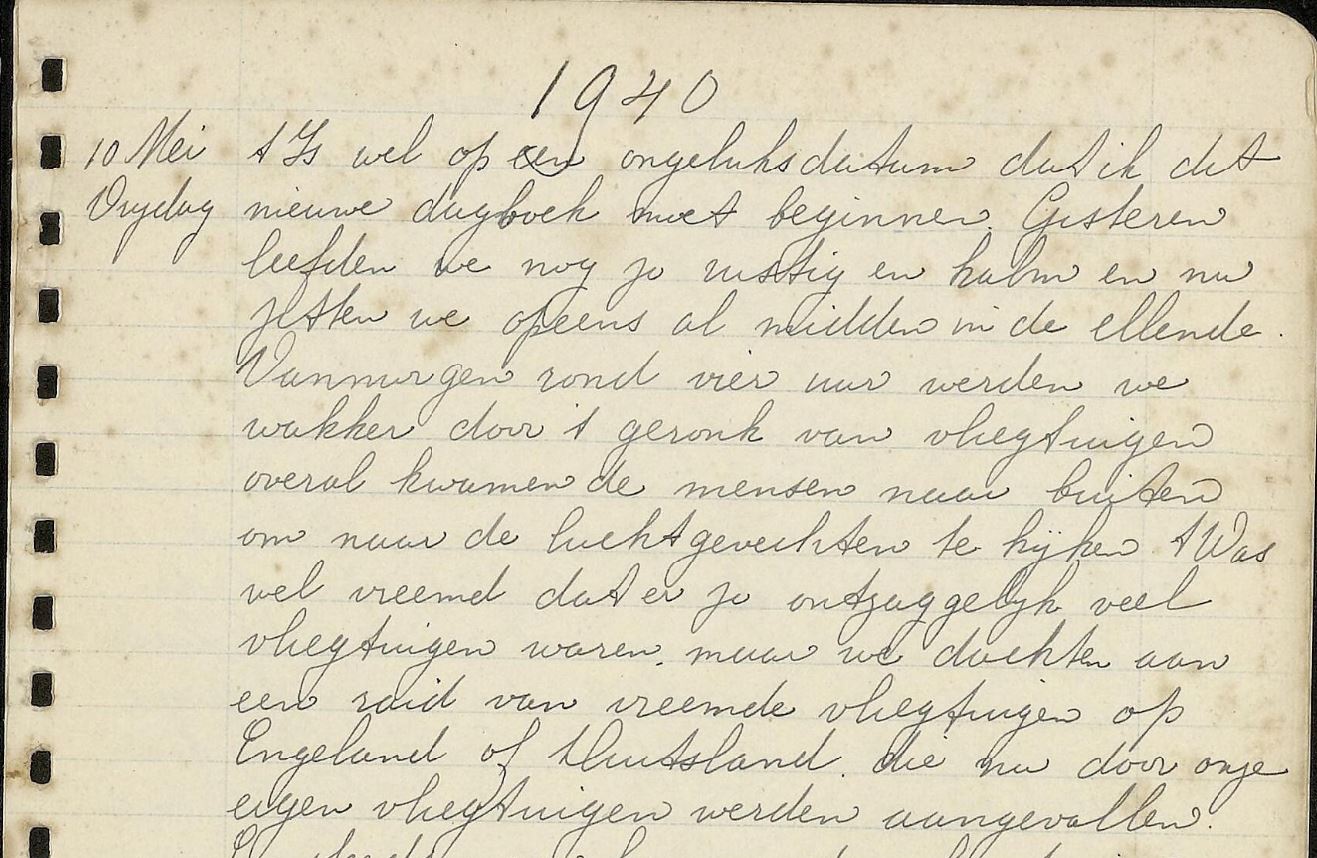 1940
10 Mei 't Is wel op een ongeluksdatum dat ik dit
Vrydag nieuwe dagboek moet beginnen. Gisteren
leefden we nog zo rustig en kalm en nu
zitten we opeens al midden in de ellende.
Vanmorgen rond vier uur werden we
wakker door 't geronk van vliegtuigen
overal kwamen de mensen naar buiten
om naar de luchtgevechten te kijken 't Was
wel vreemd dat er zo ontzaggelijk veel
vliegtuigen waren. maar we dachten aan
een raid van vreemde vliegtuigen op
Engeland of Duitsland. die nu door onze
eigen vliegtuigen werden aangevallen.